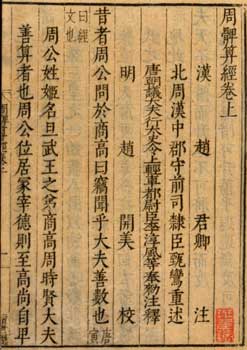 周髀算經卷上
漢趙君卿注
北周漢中郡守前司隸臣甄鸞重述
唐朝議大夫行太史令上輕車都尉臣李淳風等奉勅注釋
明趙開美校
昔者周公問於商高曰竊聞乎大夫善數也
周公姓姬名旦武王之弟商高周時賢大夫
善算者也周公位居冢宰德則至聖尚自卑